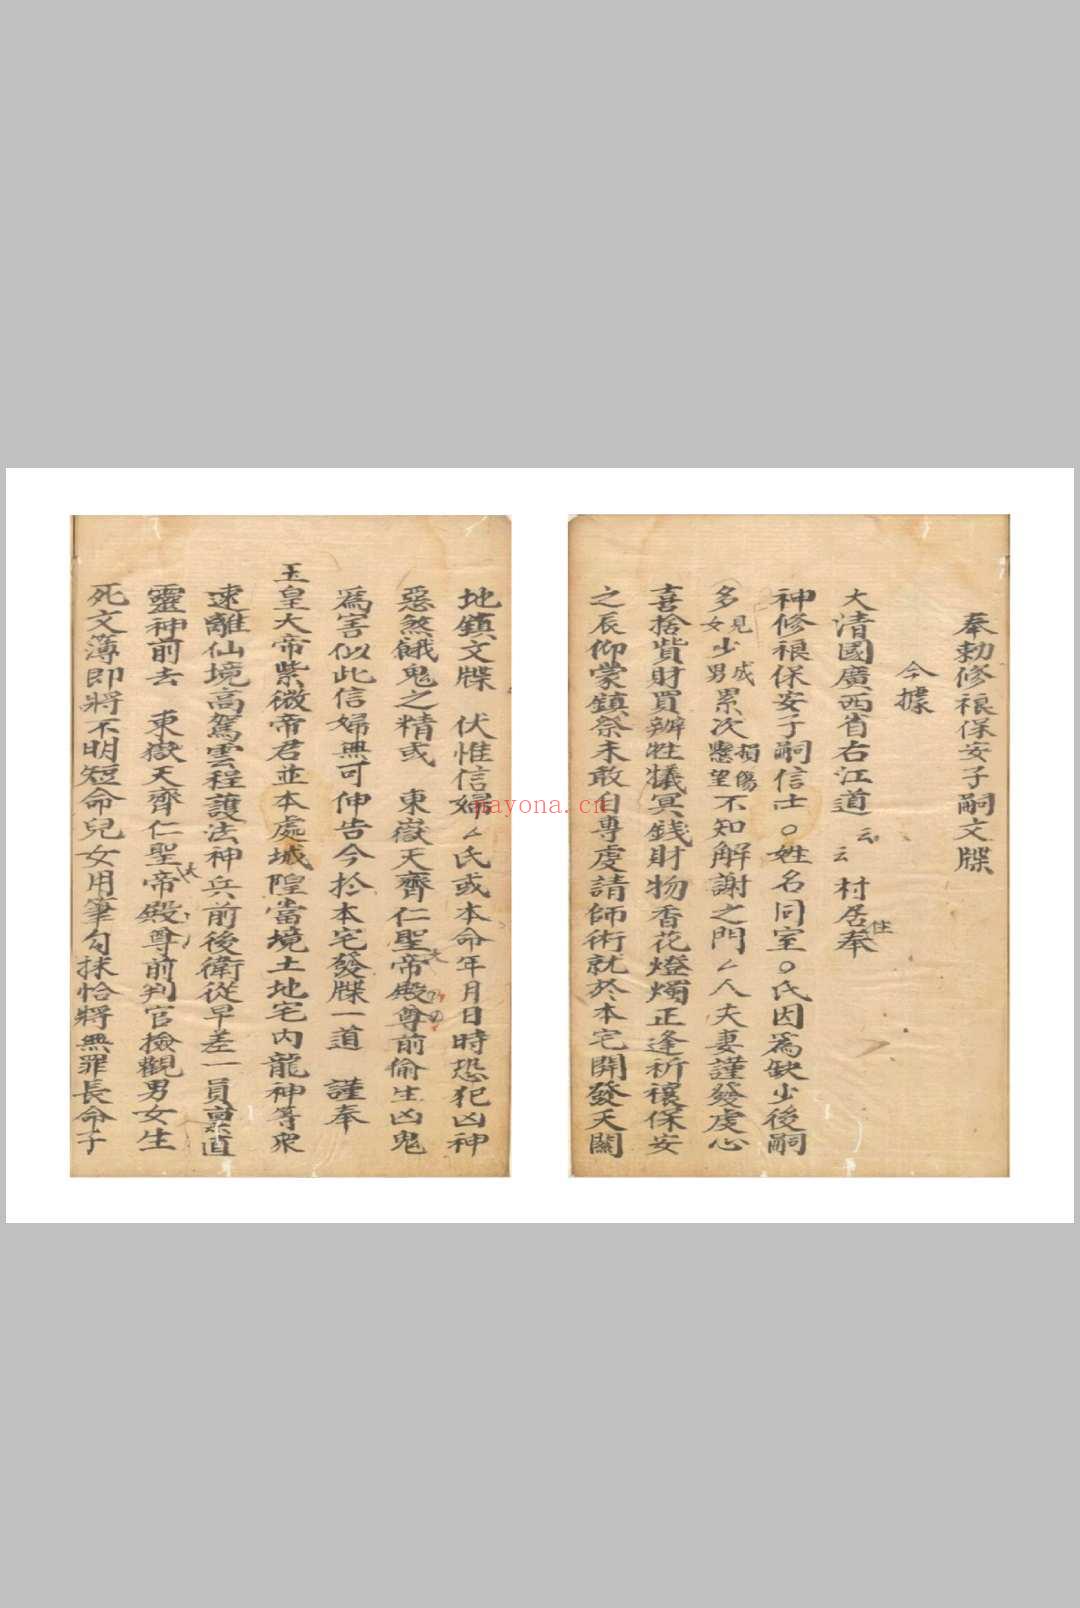 奉勅修禳保安子嗣文牒
今據
大清國廣西省右江道云云村居住奉
神修禳保安子嗣信士○姓名同室○氏因為缺少後嗣
多女見少男成累次懸望損傷不知解謝之門厶人夫妻謹發虔心
喜捨貲財買辦牲犧冥錢財物香花燈燭正逢祈禳保安
之辰仰蒙鎮祭未敢自專虔請師術就於本宅開發天關
地鎮文牒 伏惟信婦厶氏或本命年月日時恐犯凶神
惡煞餓鬼之精或 東嶽天齊仁聖大帝殿尊前偷生凶鬼
為害似此信婦無可伸告今於本宅發牒一道 謹奉
玉皇大帝紫微帝君並本處城隍當境土地宅內龍神等眾
速離仙境高駕雲程護法神兵前後衛從早差一員直
靈神前去 東嶽天齊仁聖帝殿尊前判官檢觀男女生
死文簿即將不明短命兒女用筆勾抹恰將無罪長命子
nayona.cn